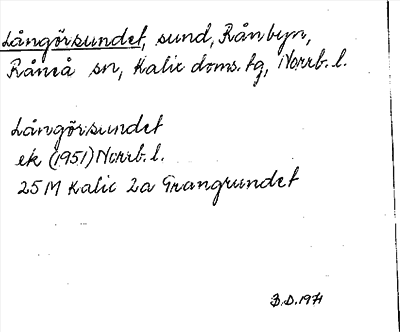 Långörsundet, sund, Rånbyn,
Råneå sn, Kalix doms. tg, Norrb. l.
Långörsundet
ek (1951) Norrb. l.
25 M Kalix 2a Grangrundet
B.D. 1971